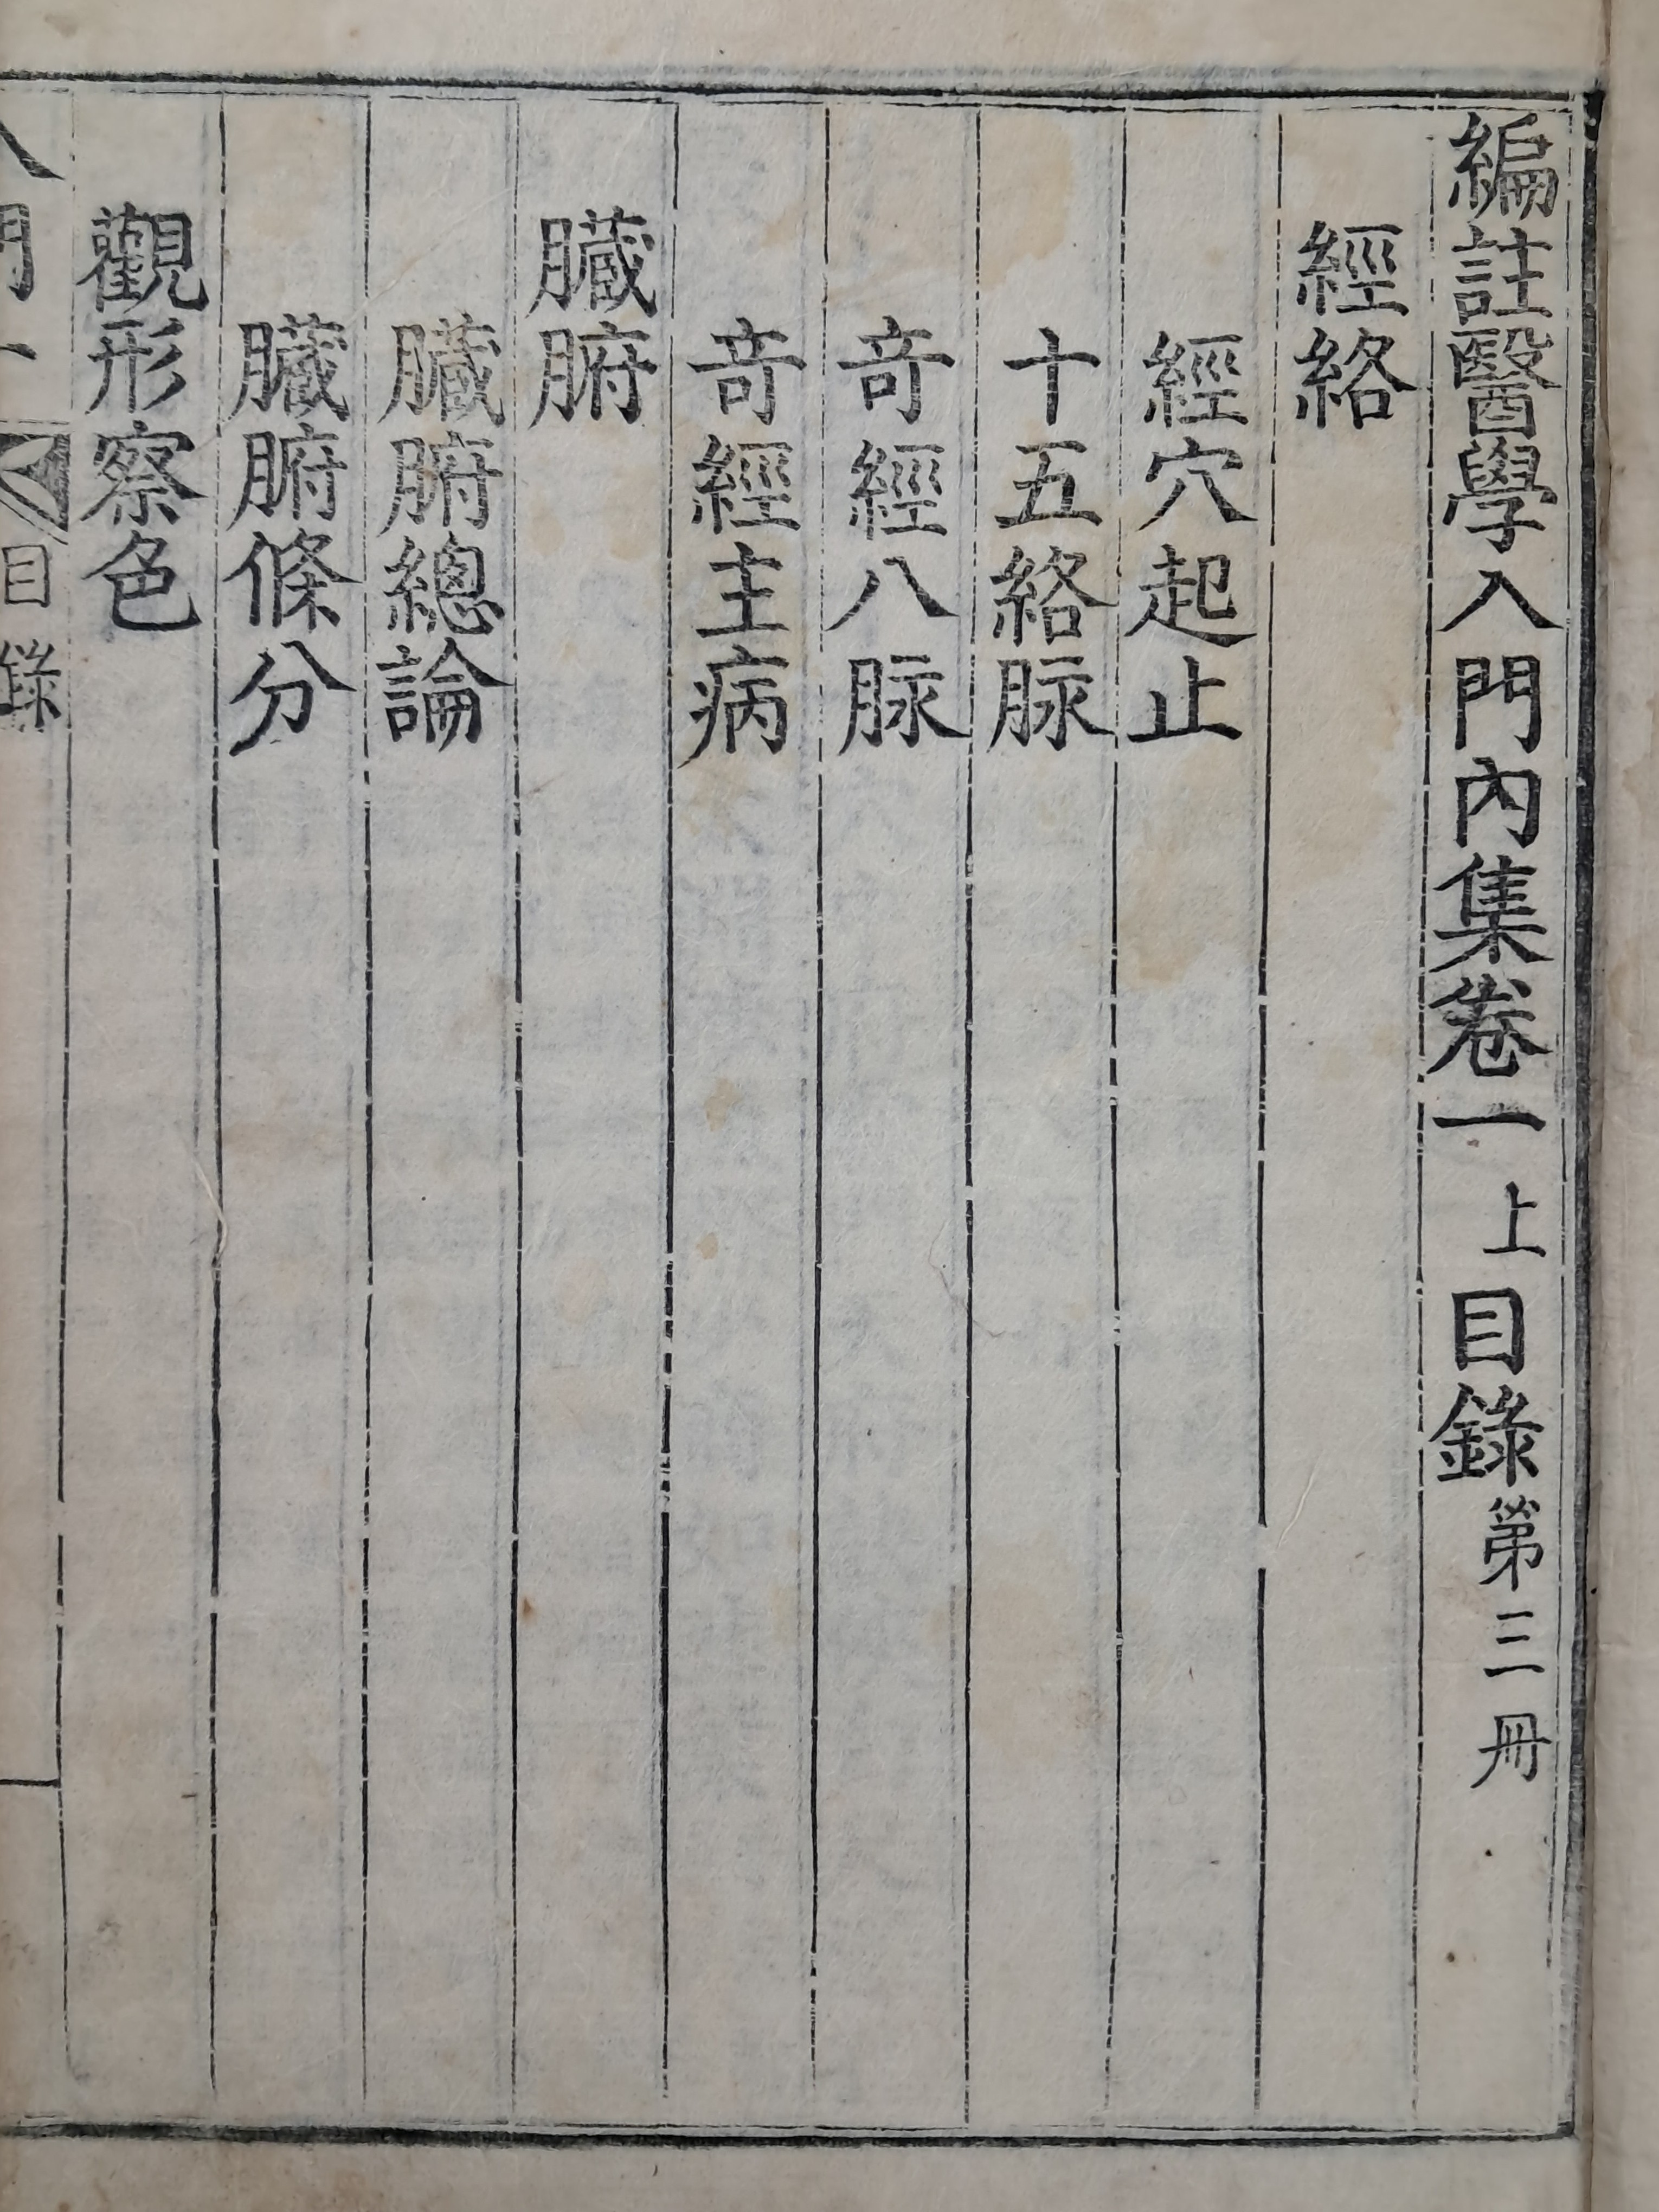 編註醫學入門內集卷一上目錄第三冊
經絡
經穴起止
十五絡脉
竒經八脉
竒經主病
臟腑
臟腑總論
臟腑條分
觀形察色
入門一 目錄